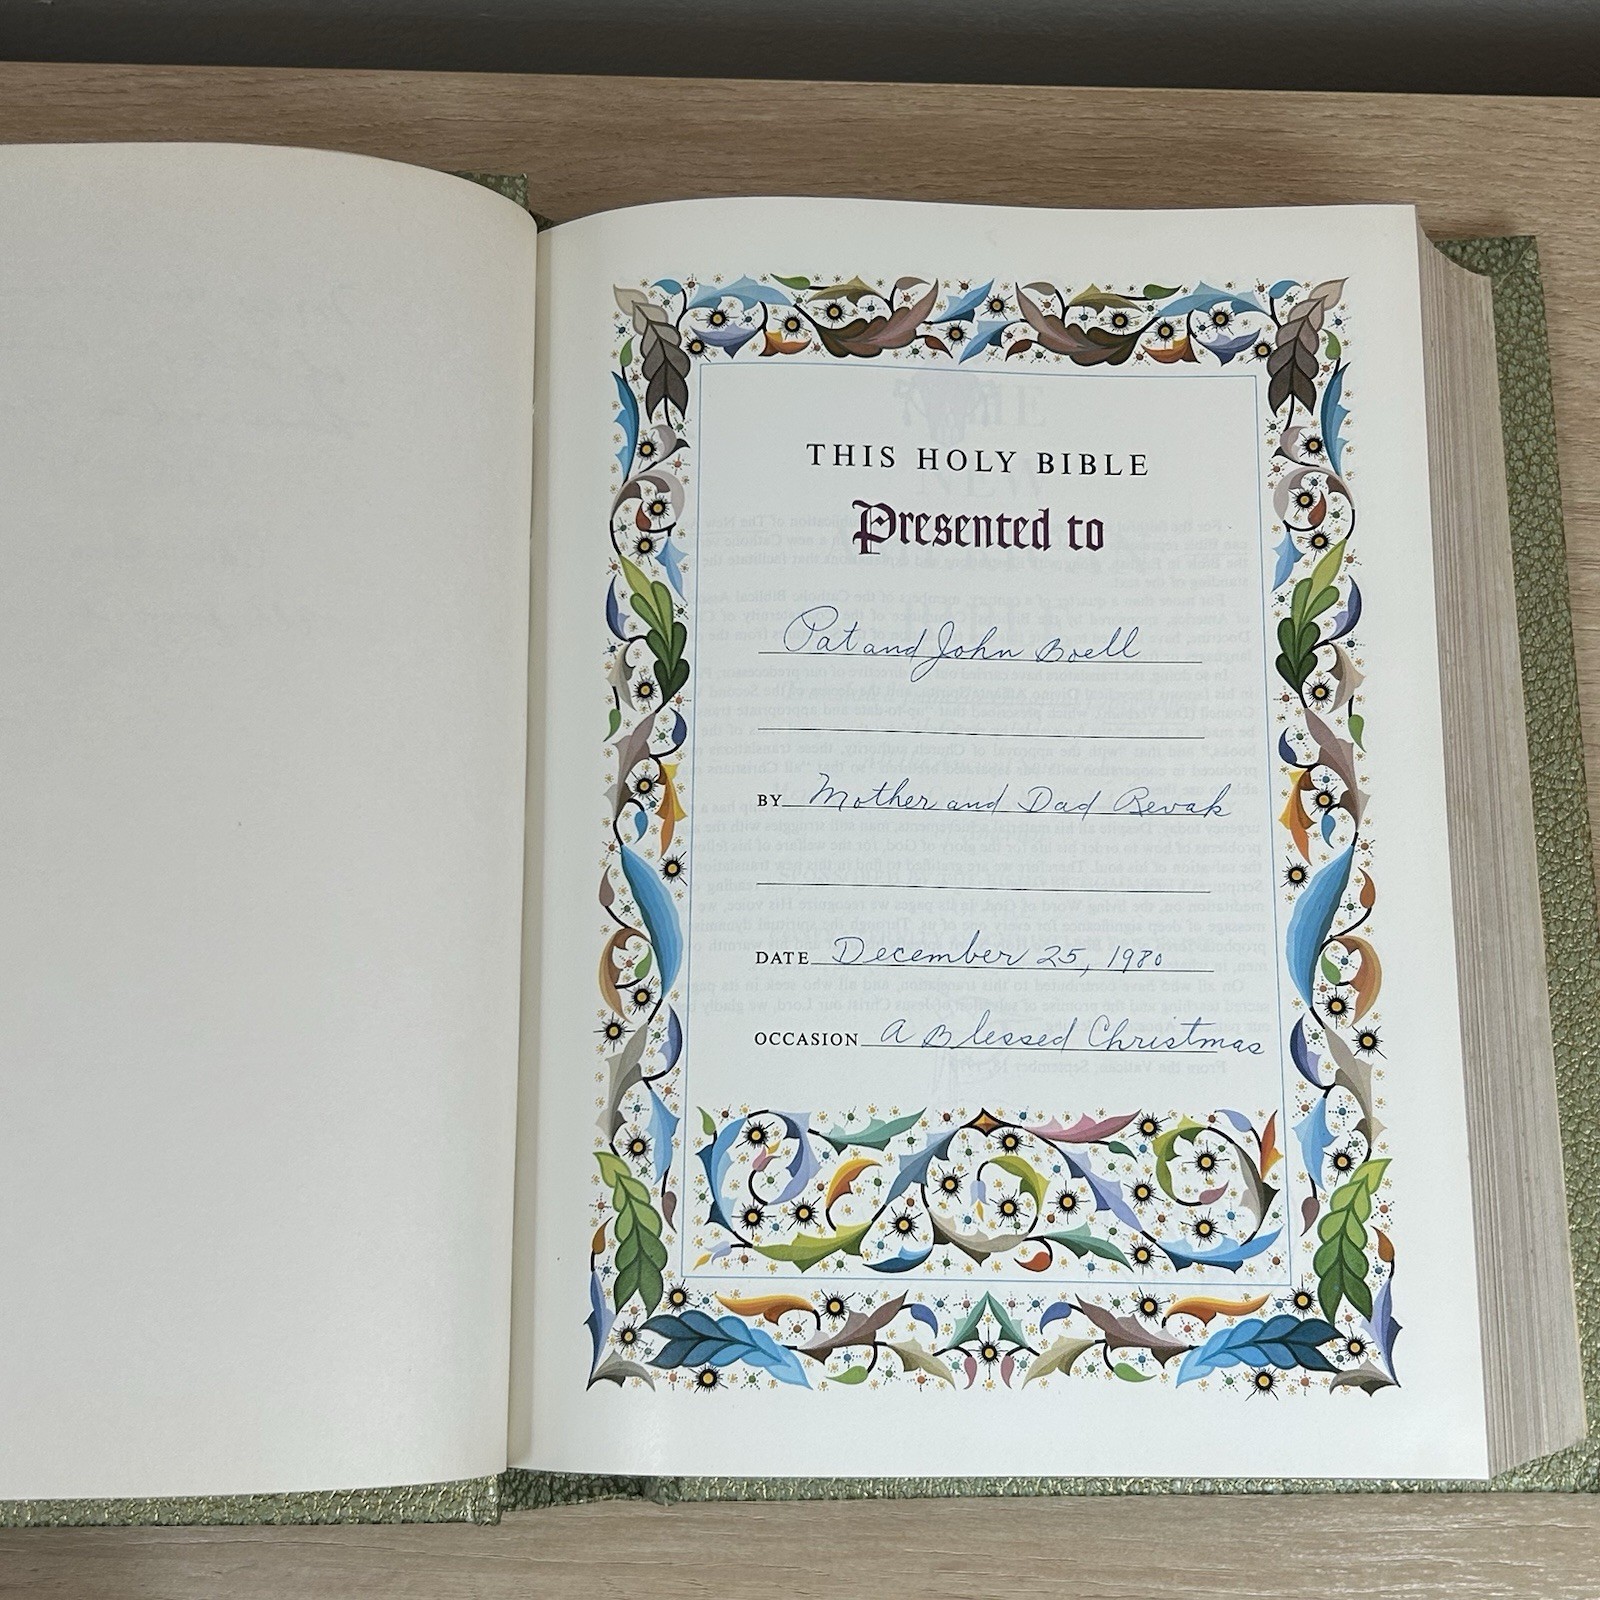 THIS HOLY BIBLE
Presented to
Pat and John Boell
BY Mother and Dad Revak
DATE December 25, 1980
OCCASION A Blessed Christmas